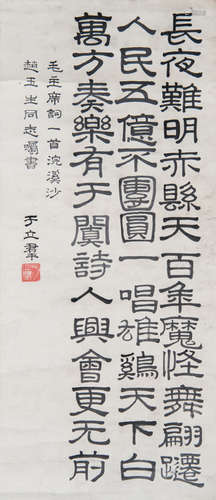 長夜難明赤縣天百年魔怪舞翩躚
人民五億不團圓一唱雄鷄天下白
萬方奏樂有于闐詩人興會更无前
毛主席詞一首浣溪沙
趙玉生同志囑書
于立羣